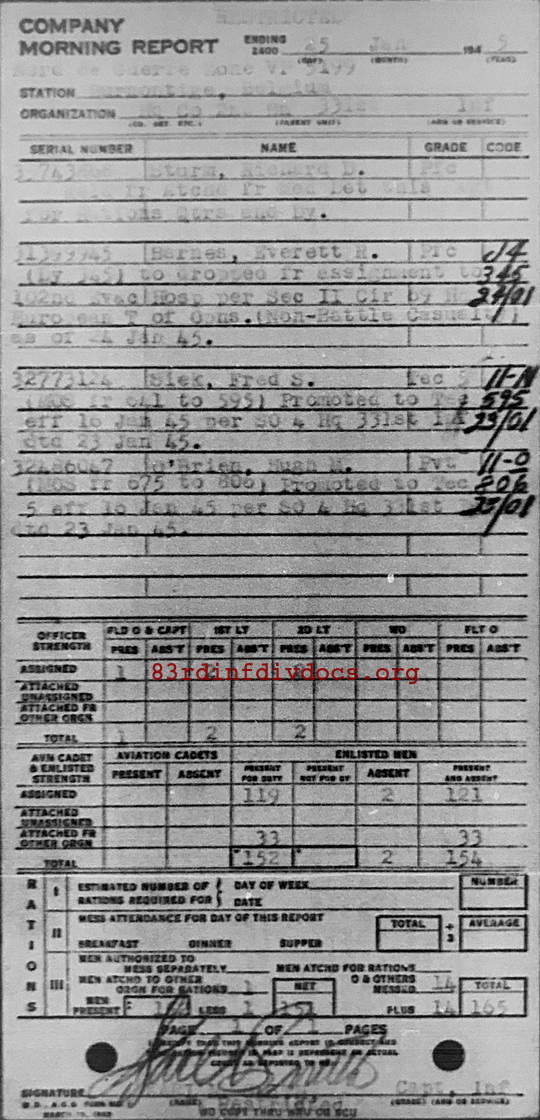 RESTRICTED
COMPANY
MORNING REPORT
ENDING 2400 25 Jan 194 5
(DAY) (MONTH) (YEAR)
STATION Belgium
ORGANIZATION Hq Co 331st Inf
(PARENT UNIT) (ARM OR SERVICE)
SERIAL NUMBER NAME GRADE CODE
Sturm, Richard D. Pfc
Atchd fr Med Det this
for Rations Qtrs and Dy.
31399945 Barnes, Everett R. Pfc J4
(Dy 345) to dropped fr assignment to 345
102nd Evac Hosp per Sec II Cir 69 24/01
European T of Opns.(Non-Battle Casualty)
as of 24 Jan 45.
32773124 Siek, Fred S. Tec 5 11-N
(MOS fr 641 to 595) Promoted to Tec 595
eff 16 Jan 45 per SO 4 Hq 331st Inf 23/01
dtd 23 Jan 45.
32486047 O'Brien, Hugh M. Pvt 11-O
(MOS fr 675 to 806) Promoted to Tec 806
5 eff 16 Jan 45 per SO 4 Hq 331st 23/01
dtd 23 Jan 45.
OFFICER STRENGTH FLD O & CAPT 1ST LT 2D LT WO FLT O
PRES ABS'T PRES ABS'T PRES ABS'T PRES ABS'T PRES ABS'T
ASSIGNED 1
83rdinfdivdocs.org
ATTACHED UNASSIGNED
ATTACHED FR OTHER ORGN
TOTAL 1 2 2
AVN CADET & ENLISTED STRENGTH AVIATION CADETS ENLISTED MEN
PRESENT ABSENT PRESENT FOR DUTY PRESENT NOT FOR DY ABSENT PRESENT AND ABSENT
ASSIGNED 119 2 121
ATTACHED UNASSIGNED
ATTACHED FR OTHER ORGN 33 33
TOTAL 152 2 154
RATIONS
I ESTIMATED NUMBER OF RATIONS REQUIRED FOR DAY OF WEEK DATE NUMBER
II MESS ATTENDANCE FOR DAY OF THIS REPORT TOTAL ÷ 3 AVERAGE
BREAKFAST DINNER SUPPER
III MEN AUTHORIZED TO MESS SEPARATELY MEN ATCHD FOR RATIONS
MEN ATCHD TO OTHER ORGN FOR RATIONS 1 NET O & OTHERS MESSED 14 TOTAL
MEN PRESENT LESS 1 151 PLUS 14 165
PAGE 1 OF 1 PAGES
SIGNATURE Capt Inf
(GRADE) (ARM OR SERVICE)
Restricted